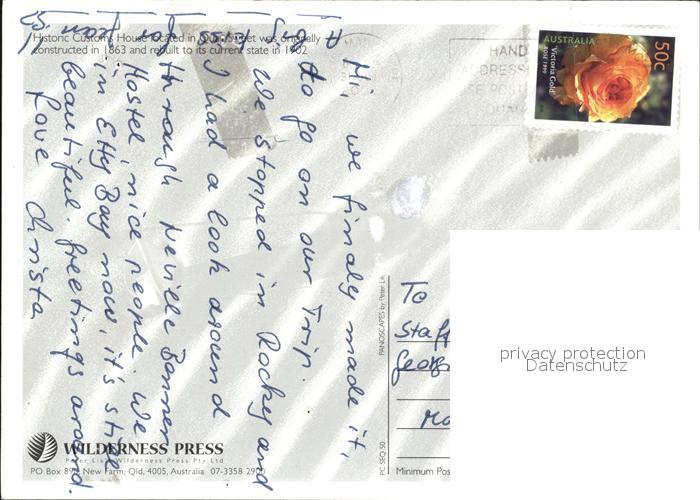 Historic Customs House located in Queen Street was originally
constructed in 1863 and rebuilt to its current state in 1902
Hi, we finaly made it,
to go on our Trip.
We stopped in Rocky and
I had a look around
through Neville Bonner
Hostel, nice people. We
in Etty Bay now, it's still
beautiful. greetings around.
Love Christa
AUSTRALIA
'Victoria Gold'
50c
HAND
E POST
To
Staff
Georg
PANOSCAPES by Peter Lik
PC SEQ 50
privacy protection
Datenschutz
WILDERNESS PRESS
Peter Lik's Wilderness Press Pty Ltd
New Farm, Qld, 4005, Australia 07-3358
Minimum Pos